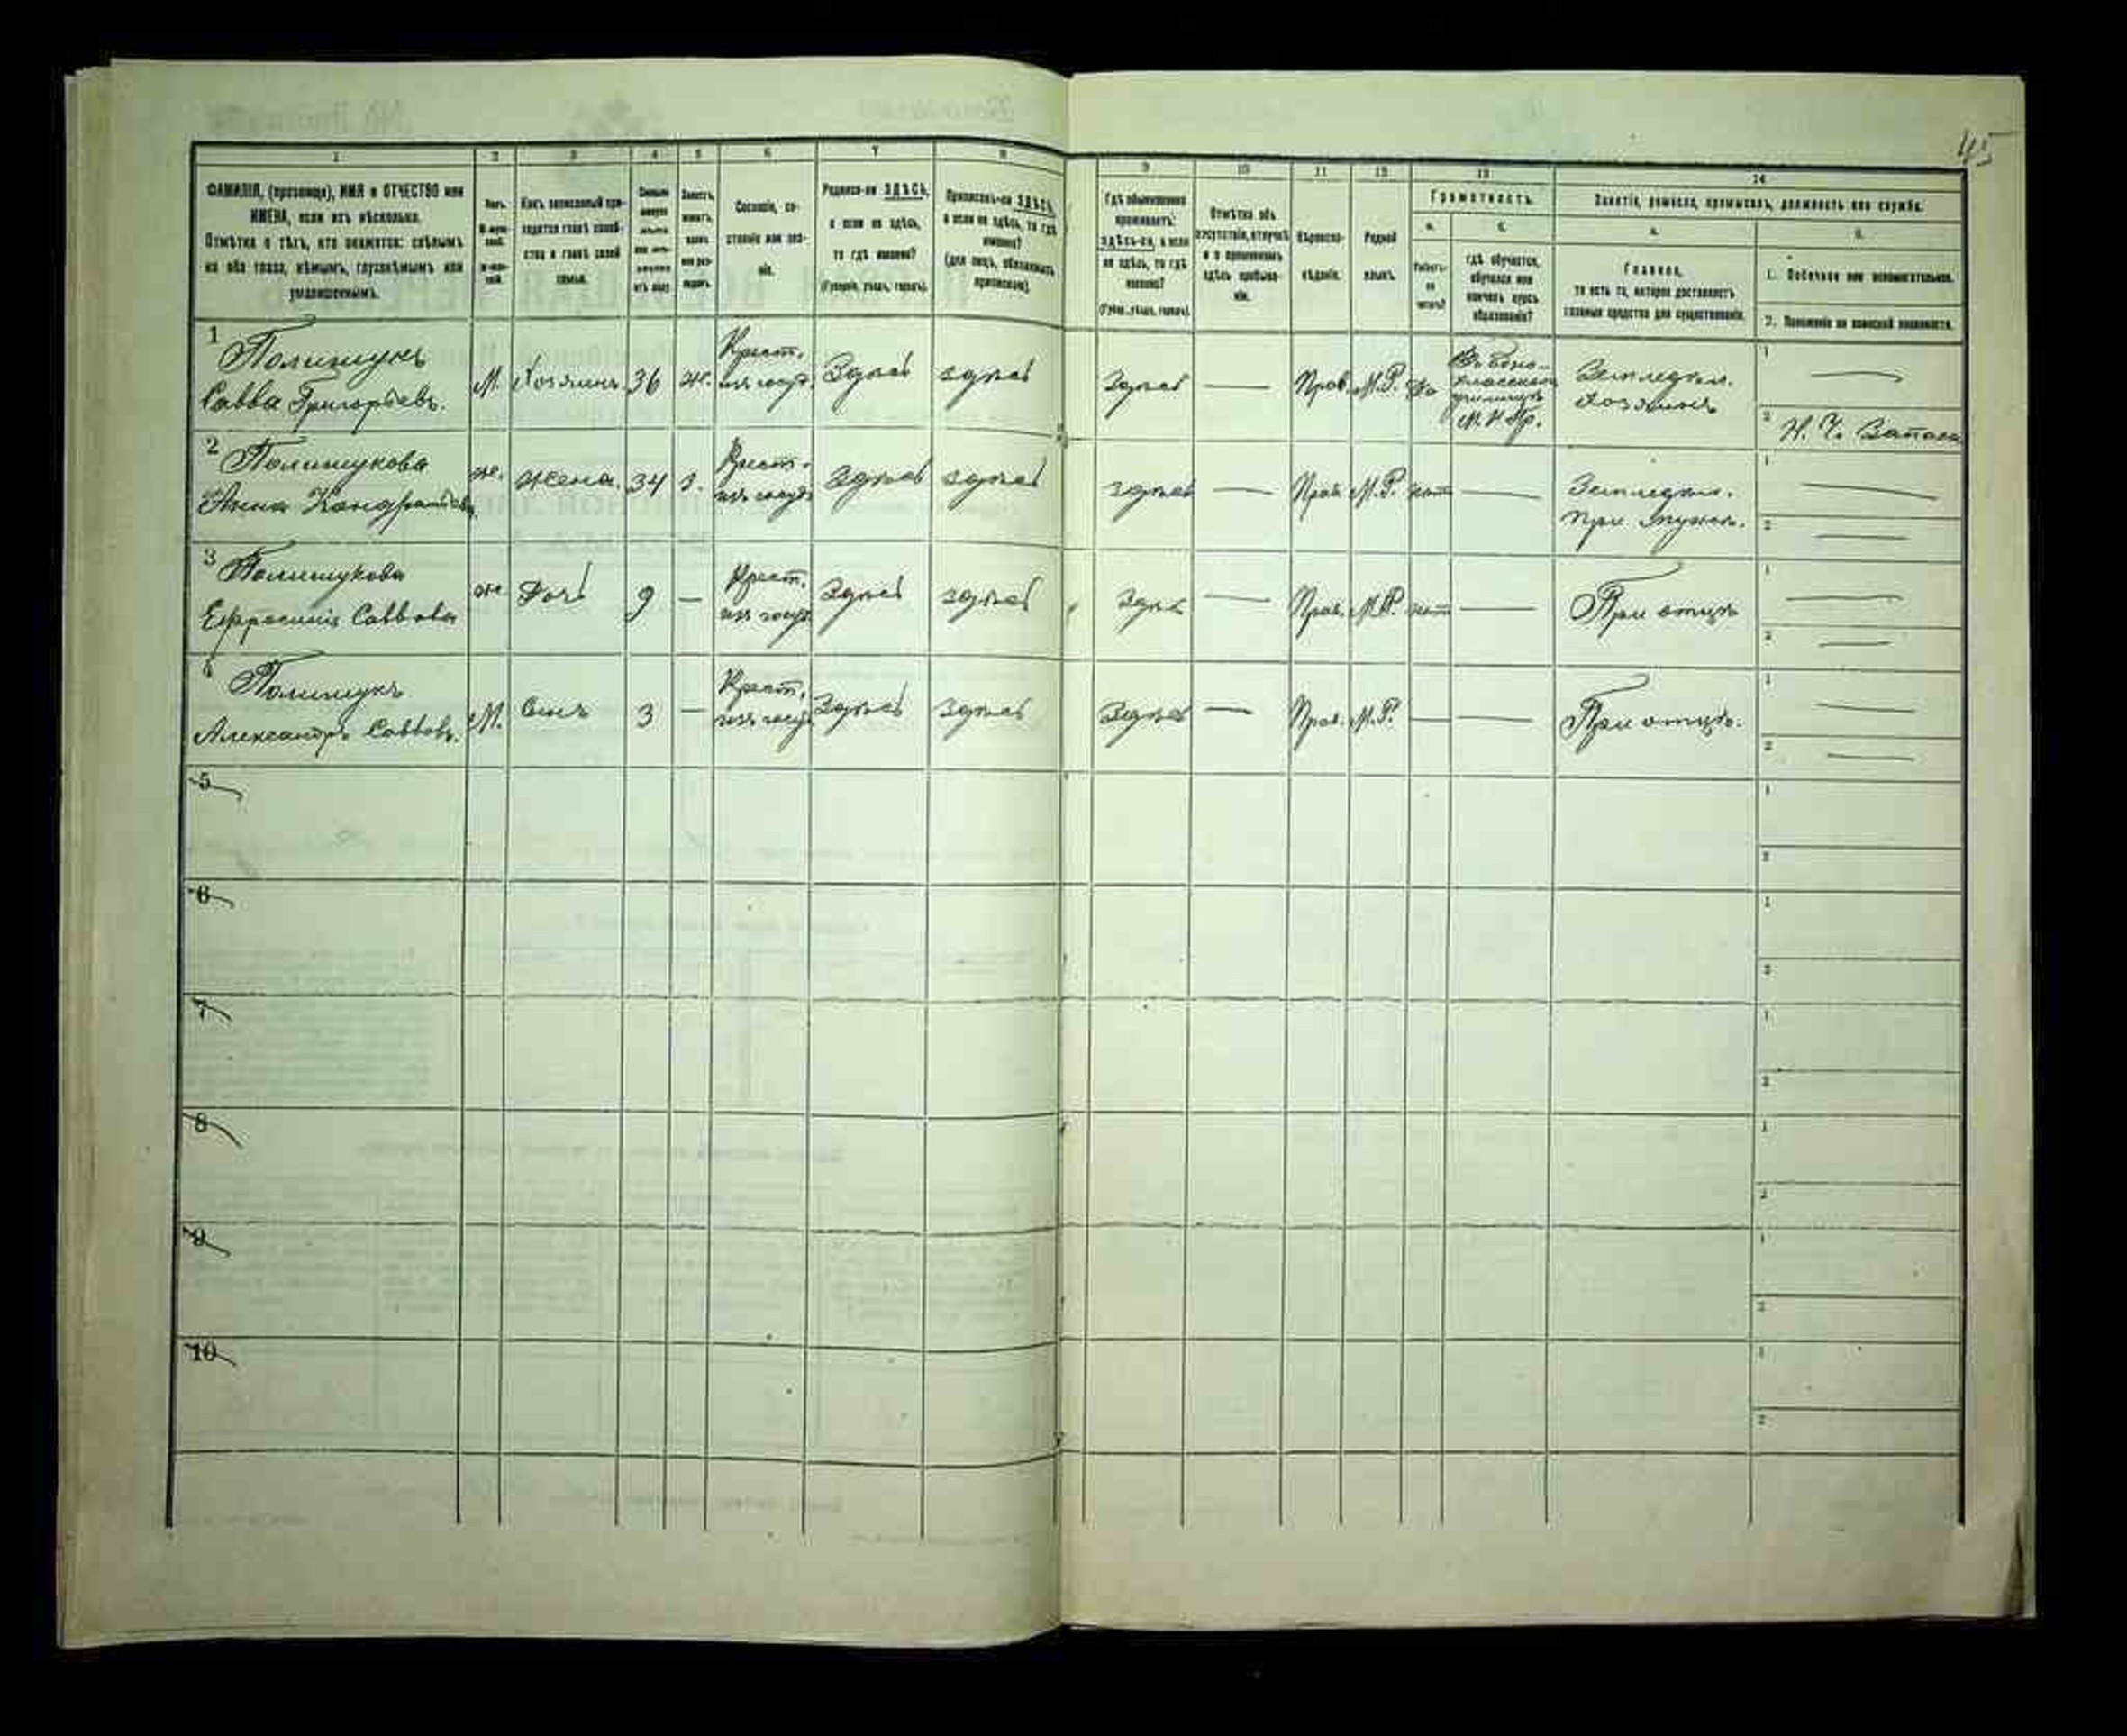 45
1 2 3 4 5 6 7 8 9 10 11 12 13 14
ФАМИЛІЯ, (прозвище), ИМЯ и ОТЧЕСТВО или
ИМЕНА, если ихъ нѣсколько.
Отмѣтка о тѣхъ, кто окажется: слѣпымъ
на оба глаза, нѣмымъ, глухонѣмымъ или
умалишеннымъ.
Полъ.
Какъ записанный при-
ходится главѣ хозяй-
ства и главѣ своей
семьи.
Сословіе, со-
стояніе или зва-
ніе.
Родился-ли ЗДѢСЬ,
а если не здѣсь,
то гдѣ именно?
(Губернія, уѣздъ, городъ).
Приписанъ-ли ЗДѢСЬ,
а если не здѣсь, то гдѣ
именно?
(для лицъ, обязанныхъ
припискою).
Гдѣ обыкновенно
проживаетъ:
здѣсь-ли, а если
не здѣсь, то гдѣ
именно?
(Губер., уѣздъ, городъ).
Отмѣтка объ
отсутствіи, отлучкѣ
и о временномъ
здѣсь пребыва-
ніи.
Вѣроиспо-
вѣданіе.
Родной
языкъ.
Грамотность.
а. б.
Умѣетъ-
ли
читать?
гдѣ обучается,
обучался или
кончилъ курсъ
образованія?
Занятіе, ремесло, промыселъ, должность или служба.
а. б.
Главное,
то есть то, которое доставляетъ
главныя средства для существованія.
1. Побочное или вспомогательное.
2. Положеніе по воинской повинности.
1 Полищукъ
Савва Григорьевъ.
М. Хозяинъ 36 ж. Крест.
изъ госуд. Здѣсь здѣсь здѣсь — Прав. М.Р. Да
Въ одно-
классном
училищѣ
М. Н. Пр.
Земледѣл.
хозяинъ
1 —
2 Н. Ч. Запаса
2 Полищукова
Анна Кондратьева
ж. жена. 34 з. Крест.
изъ госуд. здѣсь здѣсь здѣсь — Прав. М.Р. нет —
Земледѣл.
при мужѣ.
1 —
2 —
3 Полищукова
Ефросинія Саввова
ж Дочь 9 — Крест.
изъ госуд. Здѣсь здѣсь здѣсь — Прав. М.Р. нет —
При отцѣ
1 —
2 —
4 Полищукъ
Александръ Саввовъ.
М. Сынъ 3 — Крест.
изъ госуд Здѣсь Здѣсь Здѣсь — Прав. М.Р. — —
При отцѣ.
1 —
2 —
5
1
2
6
1
2
7
1
2
8
1
2
9
1
2
10
1
2